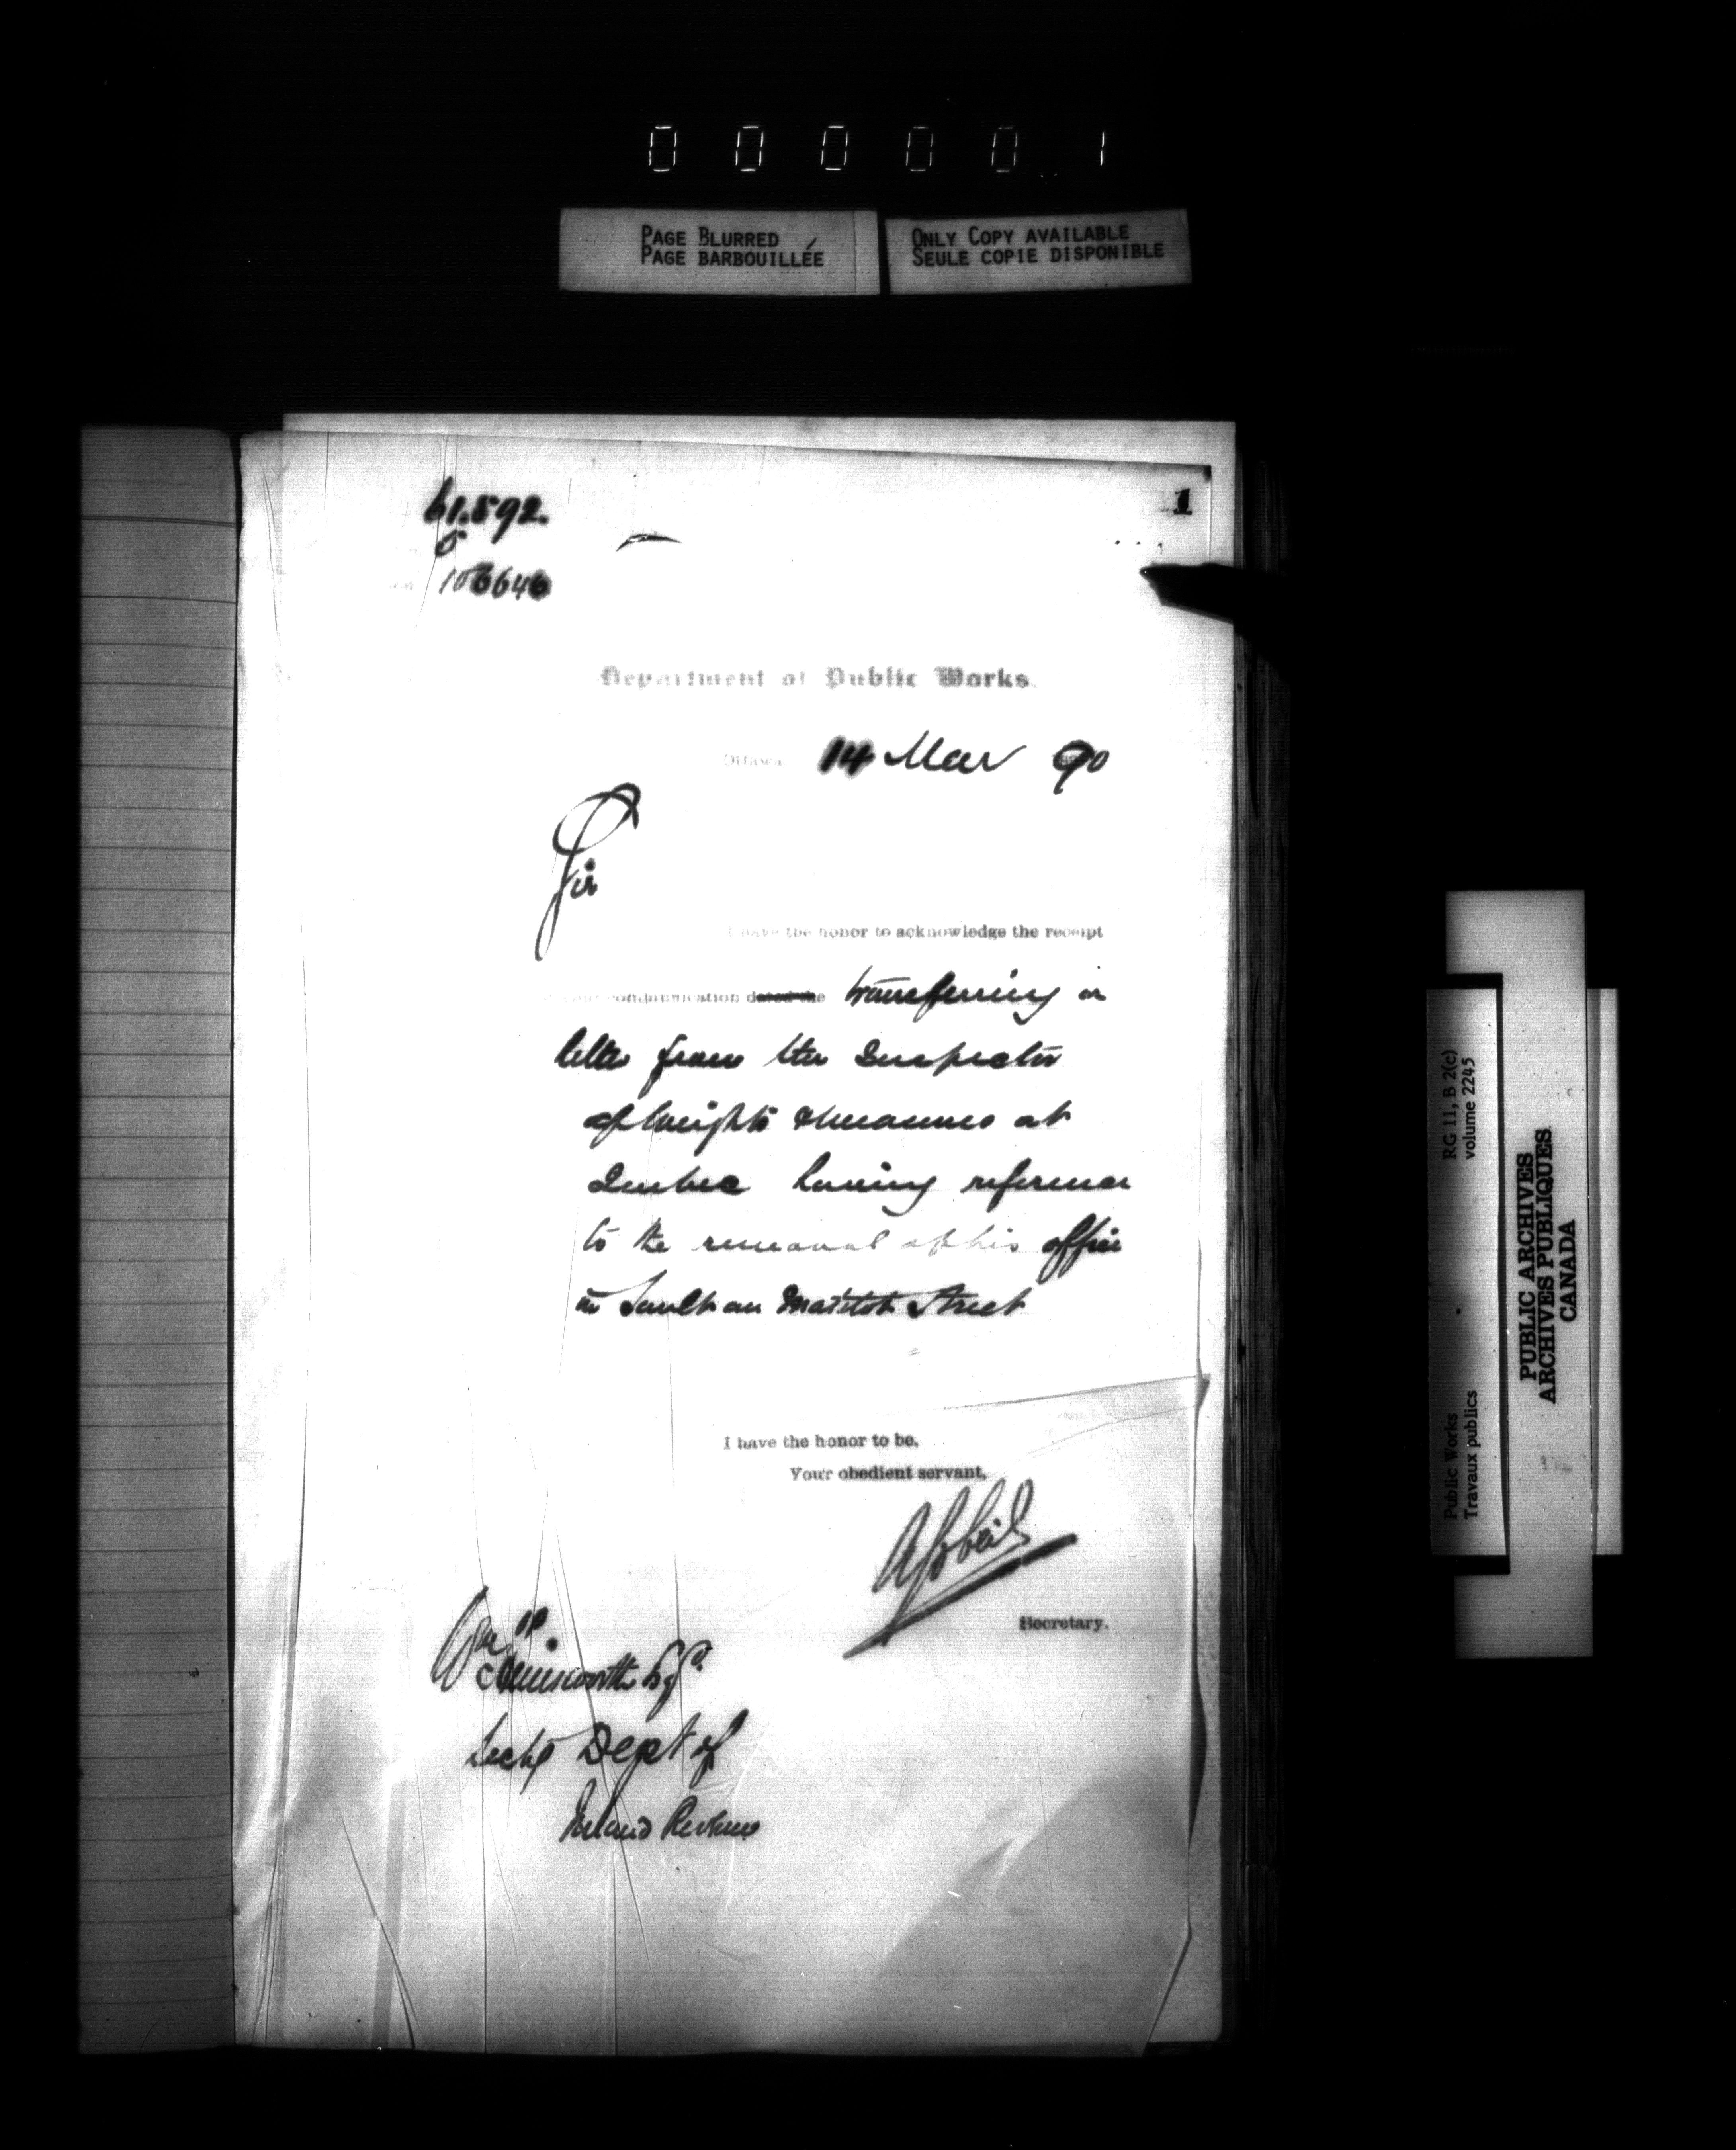 000001
PAGE BLURRED
PAGE BARBOUILLÉE
ONLY COPY AVAILABLE
SEULE COPIE DISPONIBLE
1
61.592.
5
106646
Department of Public Works.
Ottawa 14 Mar 90
Sir
I have the honor to acknowledge the receipt
communication dated the transferring a
letter from the Inspector
of Weights & measures at
Quebec having reference
to the removal of his office
in Sault au Matelot Street
I have the honor to be,
Your obedient servant,
Secretary.
Wm
Himsworth Esqr.
Secty Dept of
Inland Revenue
RG 11, B 2(c)
volume 2245
Public Works
Travaux publics
PUBLIC ARCHIVES
ARCHIVES PUBLIQUES
CANADA